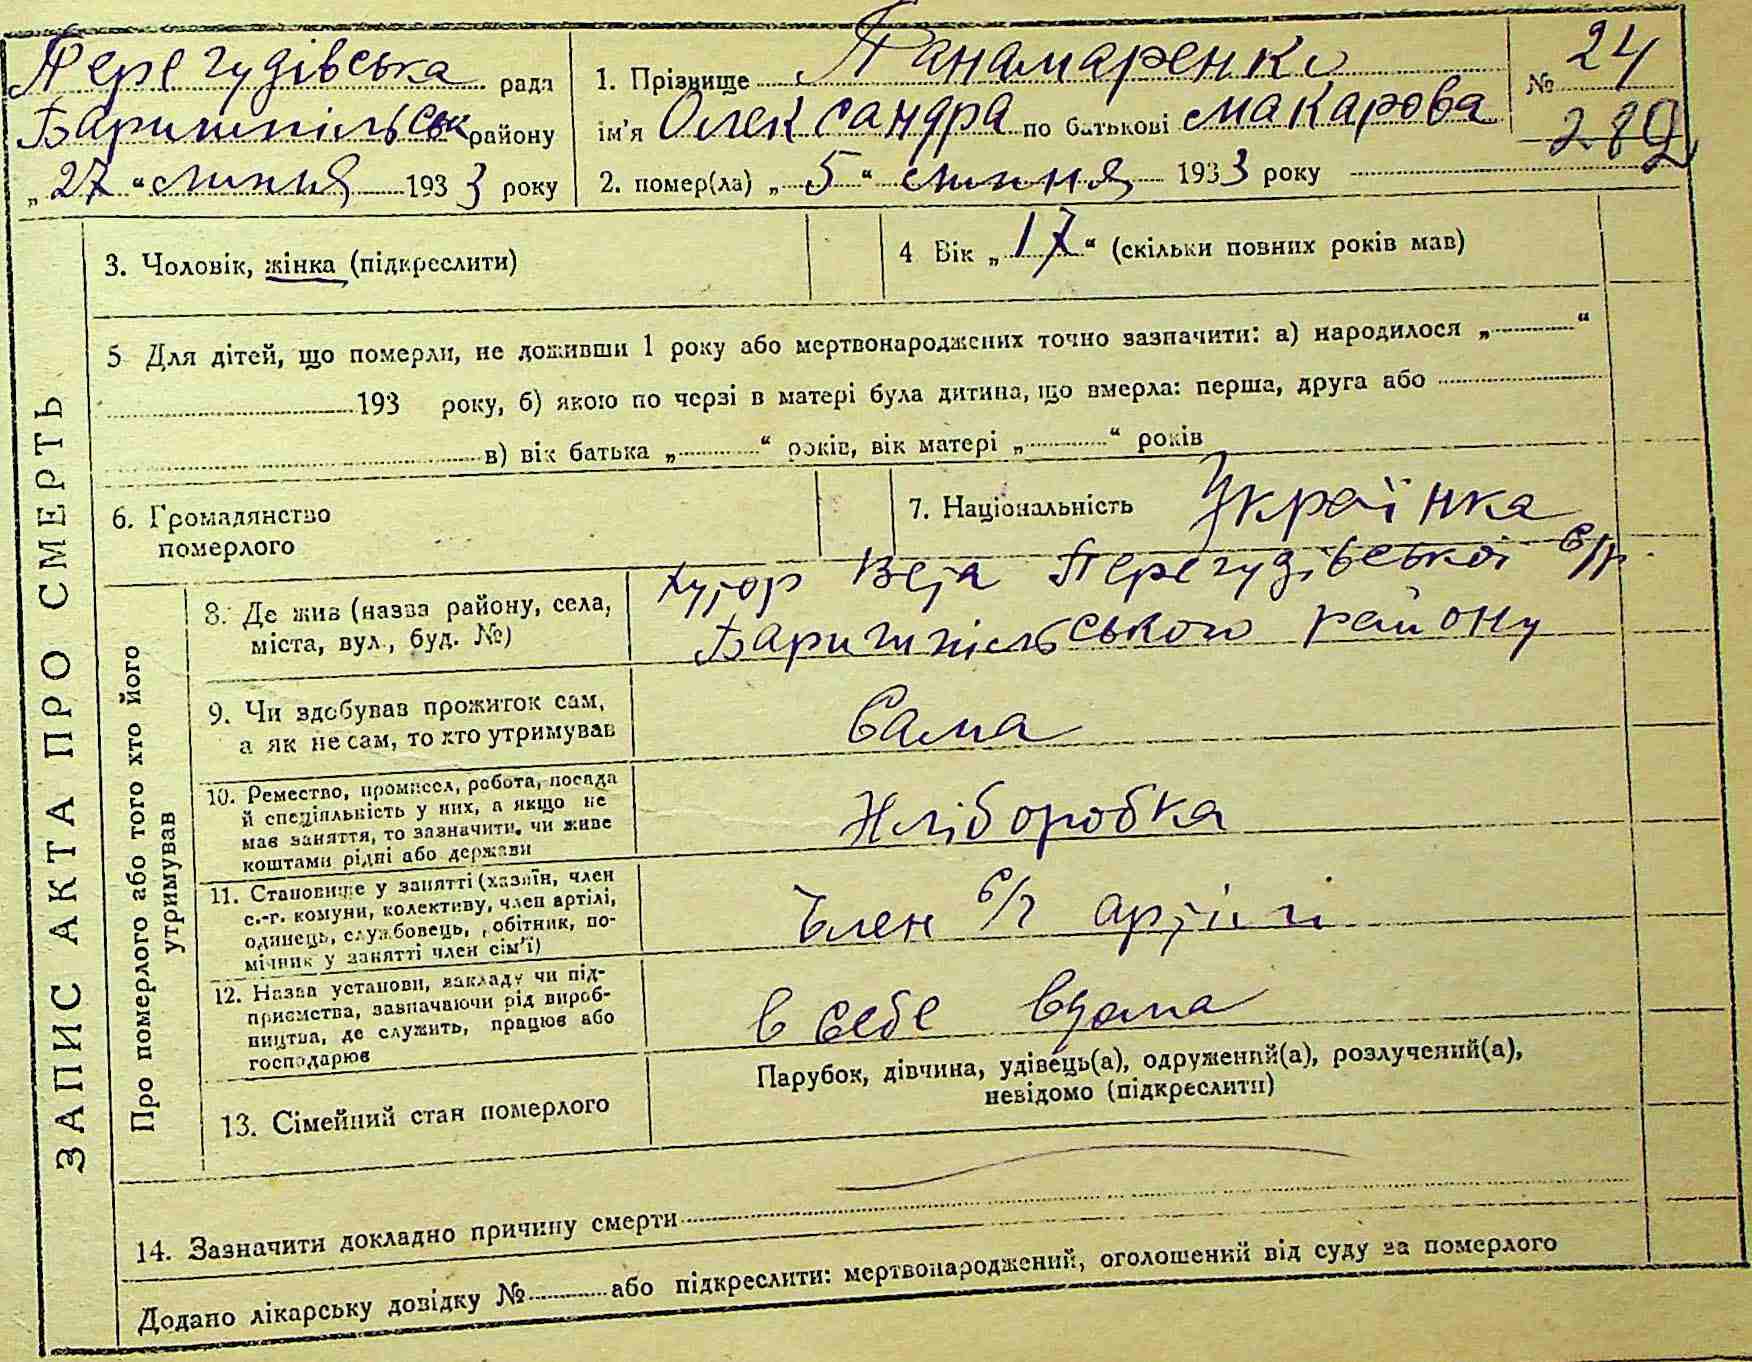 Перегудівська рада
Баришпільськ району
„27" липня 1933 року
1. Прізвище Панамаренко
ім'я Олександра по батькові Макарова
2. помер(ла) „5" липня 1933 року
№ 24
282
ЗАПИС АКТА ПРО СМЕРТЬ
3. Чоловік, жінка (підкреслити)
4 Вік „17" (скільки повних років мав)
5 Для дітей, що померли, не доживши 1 року або мертвонароджених точно зазначити: а) народилося „ "
193 року, б) якою по черзі в матері була дитина, що вмерла: перша, друга або
в) вік батька „ " років, вік матері „ " років
6. Громадянство
померлого
7. Національність Українка
Про померлого або того хто його
утримував
8. Де жив (назва району, села,
міста, вул., буд. №)
Хутор Веja Перегудівської с/р.
Баришпільського району
9. Чи здобував прожиток сам,
а як не сам, то хто утримував
Сама
10. Ремество, промисел, робота, посада
й спеціяльність у них, а якщо не
мав заняття, то зазначити, чи живе
коштами рідні або держави
Хліборобка
11. Становище у занятті (хазяїн, член
с.-г. комуни, колективу, член артілі,
одинець, службовець, робітник, по-
мічник у занятті член сім'ї)
Член с/г артілі
12. Назва установи, закладу чи під-
приємства, зазначаючи рід вироб-
ництва, де служить, працює або
господарює
В себе вдома
13. Сімейний стан померлого
Парубок, дівчина, удівець(а), одружений(а), розлучений(а),
невідомо (підкреслити)
14. Зазначити докладно причину смерти
Додано лікарську довідку № або підкреслити: мертвонароджений, оголошений від суду за померлого